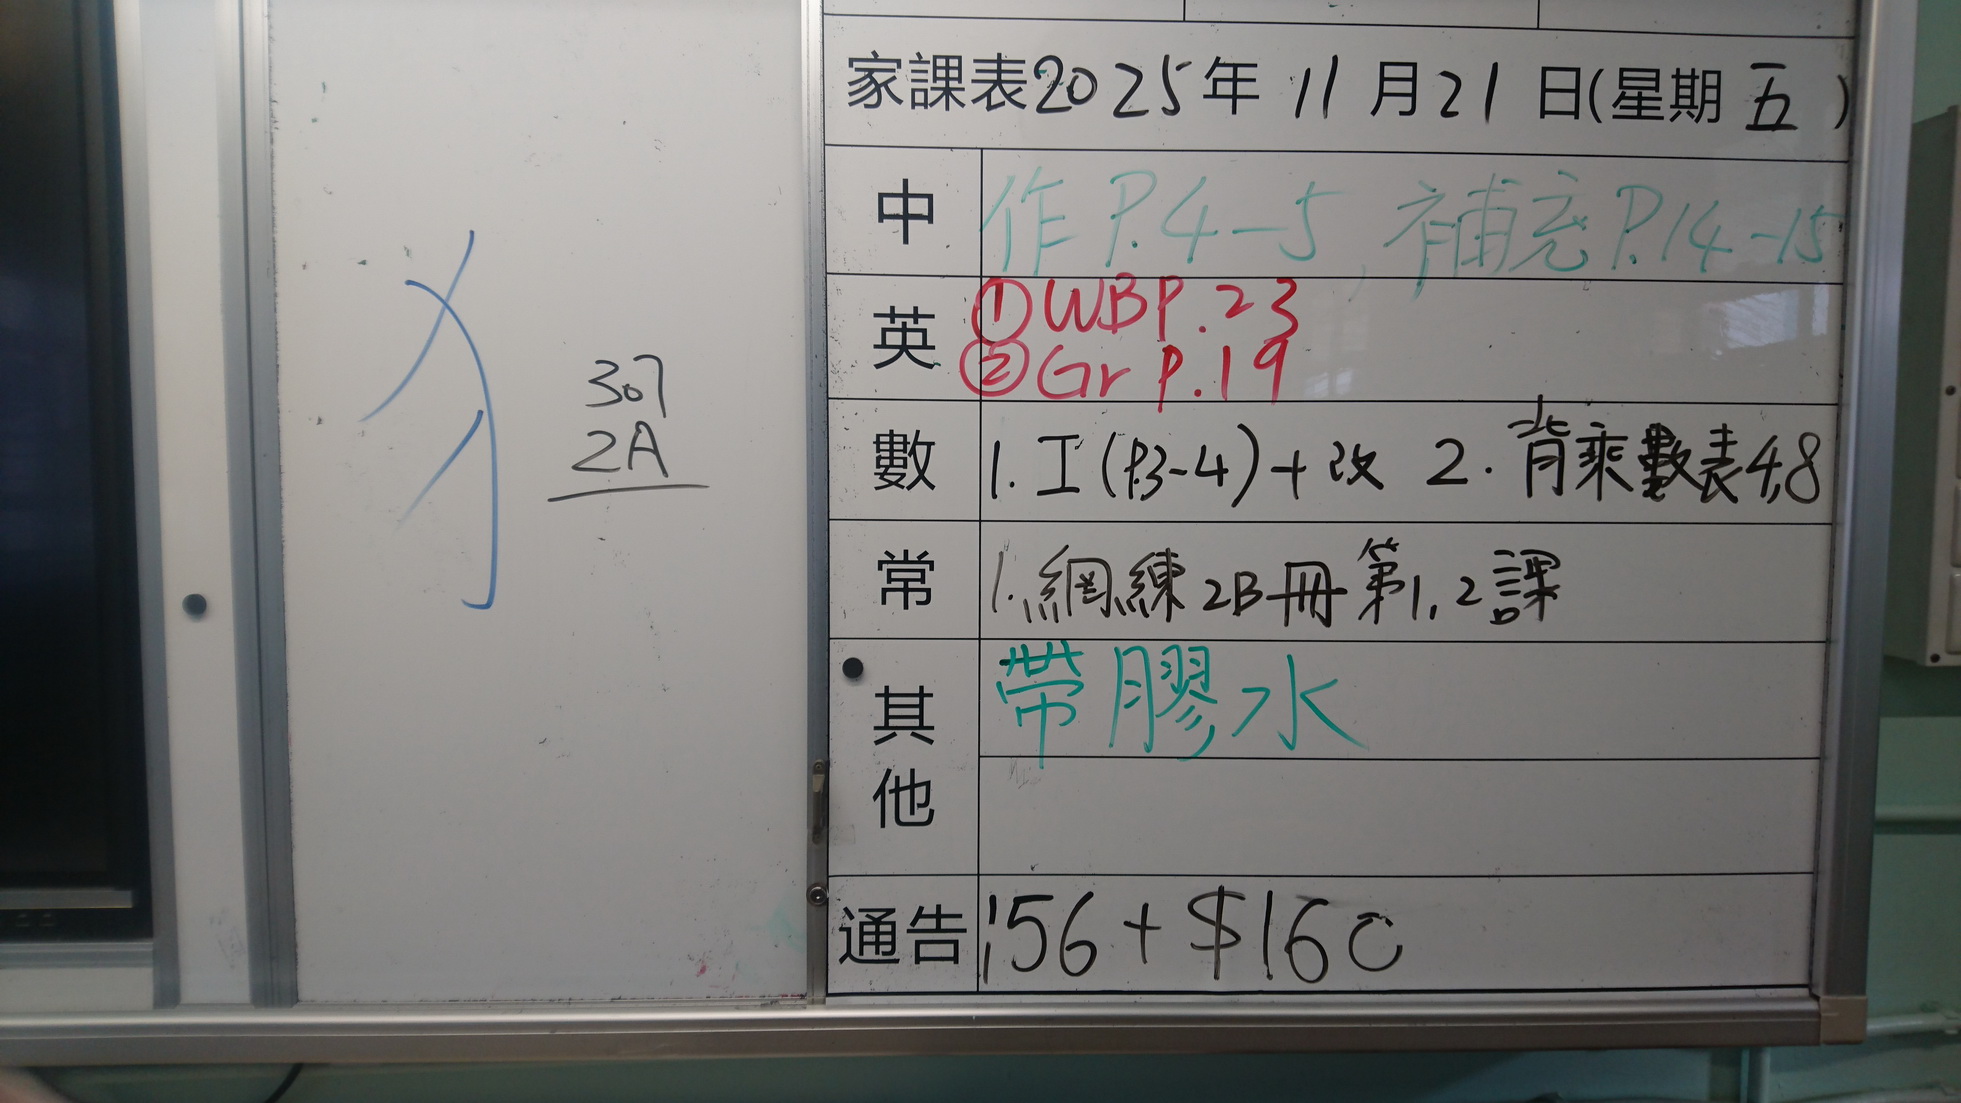 犭
307
2A
家課表2025年11月21日(星期五)
中 作P.4-5, 補充P.14-15
英 ①WBP.23
②Gr P.19
數 1.工(P.3-4)+改 2.背乘數表4,8
常 1.網練2B冊第1,2課
其他 帶膠水
通告 156+$160